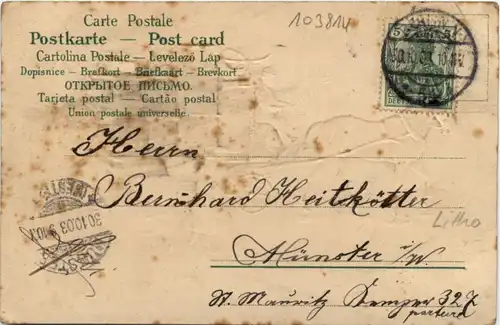 Carte Postale
Postkarte — Post card
Cartolina Postale — Levelező Lap
Dopisnice — Brefkort — Briefkaart — Brevkort
ОТКРЫТОЕ ПИСЬМО.
Tarjeta postal — Cartão postal
Union postale universelle.
103814
5 5
Herrn
Bernhard Heitkötter
Litho
Münster i/W.
30.10.03
St. Mauritz 327